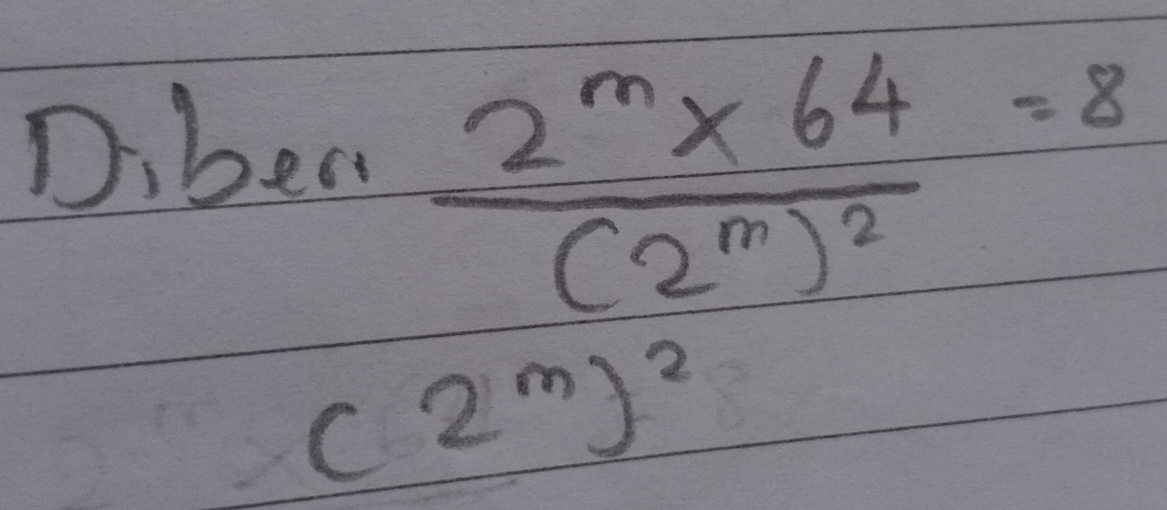 Diberi 2^m × 64 = 8
(2^m)^2
(2^m)^2